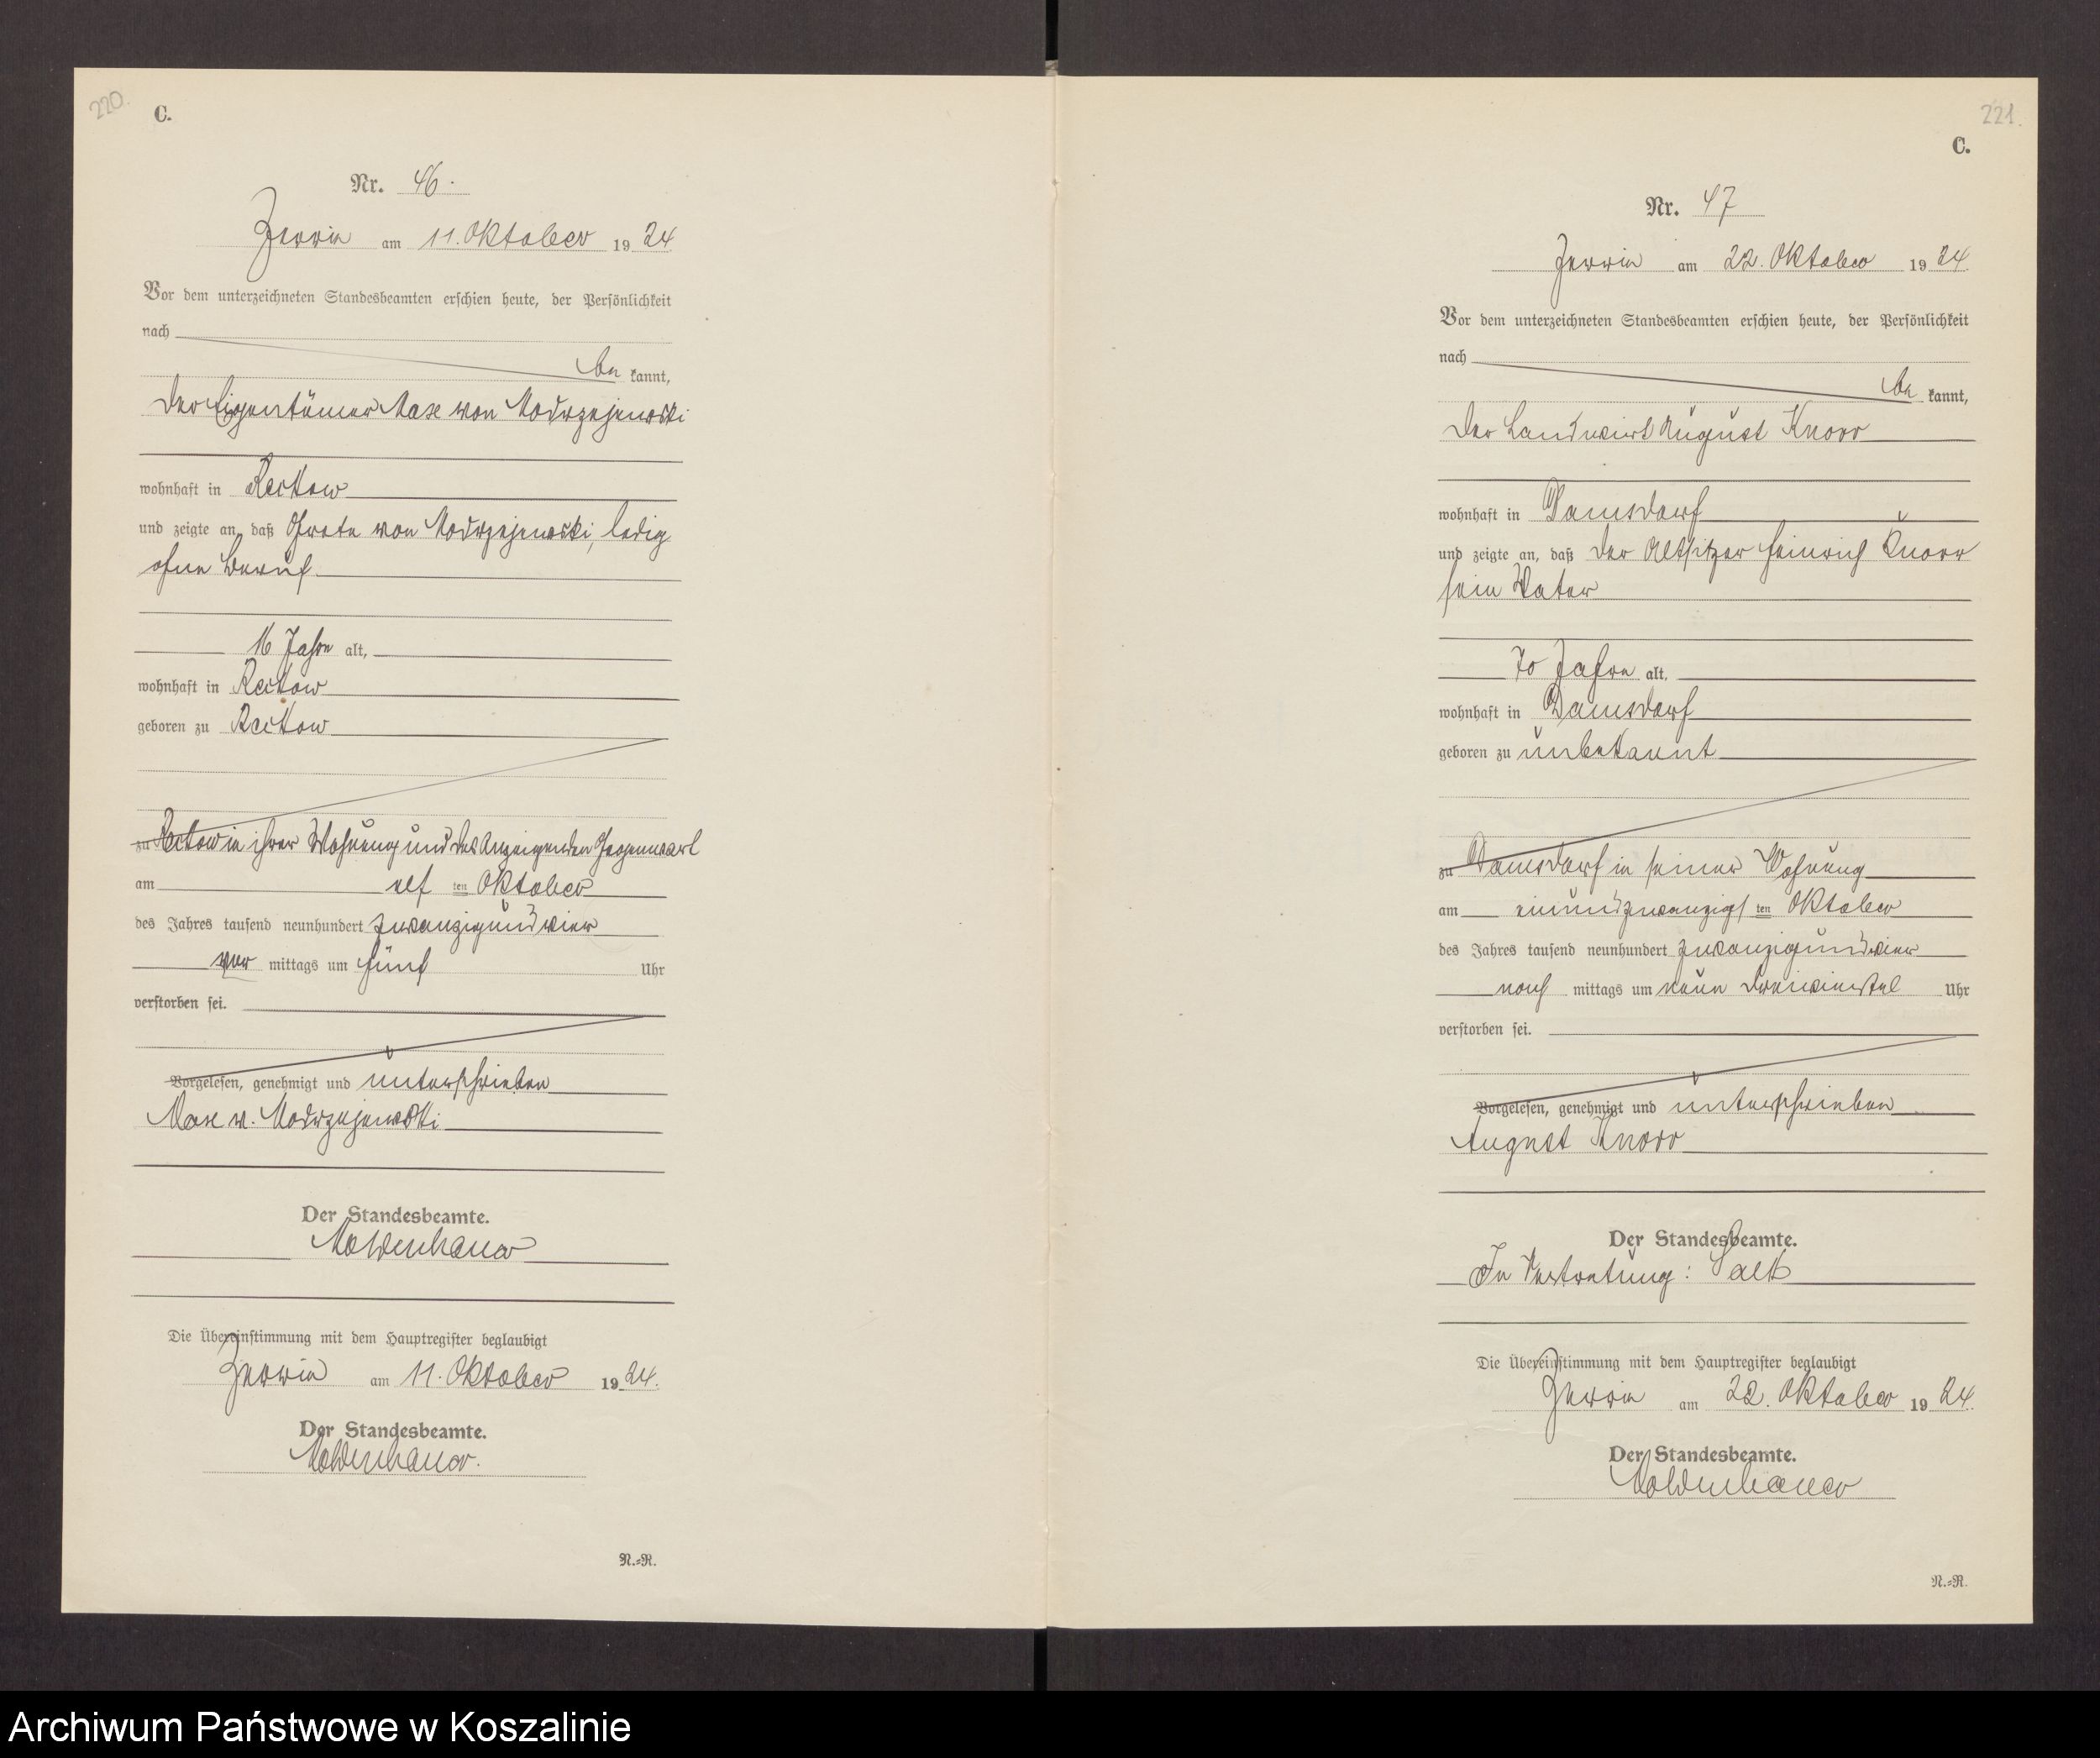 220.
C.
Nr. 46.
Jerrin am 11. Oktober 1924
Vor dem unterzeichneten Standesbeamten erschien heute, der Persönlichkeit
nach
be kannt,
der Eigentümer Max von Modrzejewski
wohnhaft in Reckow
und zeigte an, daß Grete von Modrzejewski, ledig
ohne Beruf.
16 Jahre alt,
wohnhaft in Reckow
geboren zu Reckow
zu Reckow in ihrer Wohnung und des Anzeigenden Gegenwart
am elf ten Oktober
des Jahres tausend neunhundert zwanzigundvier
vor mittags um fünf Uhr
verstorben sei.
Vorgelesen, genehmigt und unterschrieben
Max v. Modrzejewski
Der Standesbeamte.
Moldenhauer
Die Übereinstimmung mit dem Hauptregister beglaubigt
Jerrin am 11. Oktober 1924.
Der Standesbeamte.
Moldenhauer.
N.=R.
221.
C.
Nr. 47
Jerrin am 22. Oktober 1924.
Vor dem unterzeichneten Standesbeamten erschien heute, der Persönlichkeit
nach
be kannt,
der Landwirt August Knorr
wohnhaft in Damsdorf
und zeigte an, daß der Altsitzer Heinrich Knorr
sein Vater
70 Jahre alt,
wohnhaft in Damsdorf
geboren zu unbekannt
zu Damsdorf in seiner Wohnung
am einundzwanzigs ten Oktober
des Jahres tausend neunhundert zwanzigundvier
nach mittags um neun dreiviertel Uhr
verstorben sei.
Vorgelesen, genehmigt und unterschrieben
August Knorr
Der Standesbeamte.
In Vertretung:
Die Übereinstimmung mit dem Hauptregister beglaubigt
Jerrin am 22. Oktober 1924.
Der Standesbeamte.
Moldenhauer
N.=R.
Archiwum Państwowe w Koszalinie